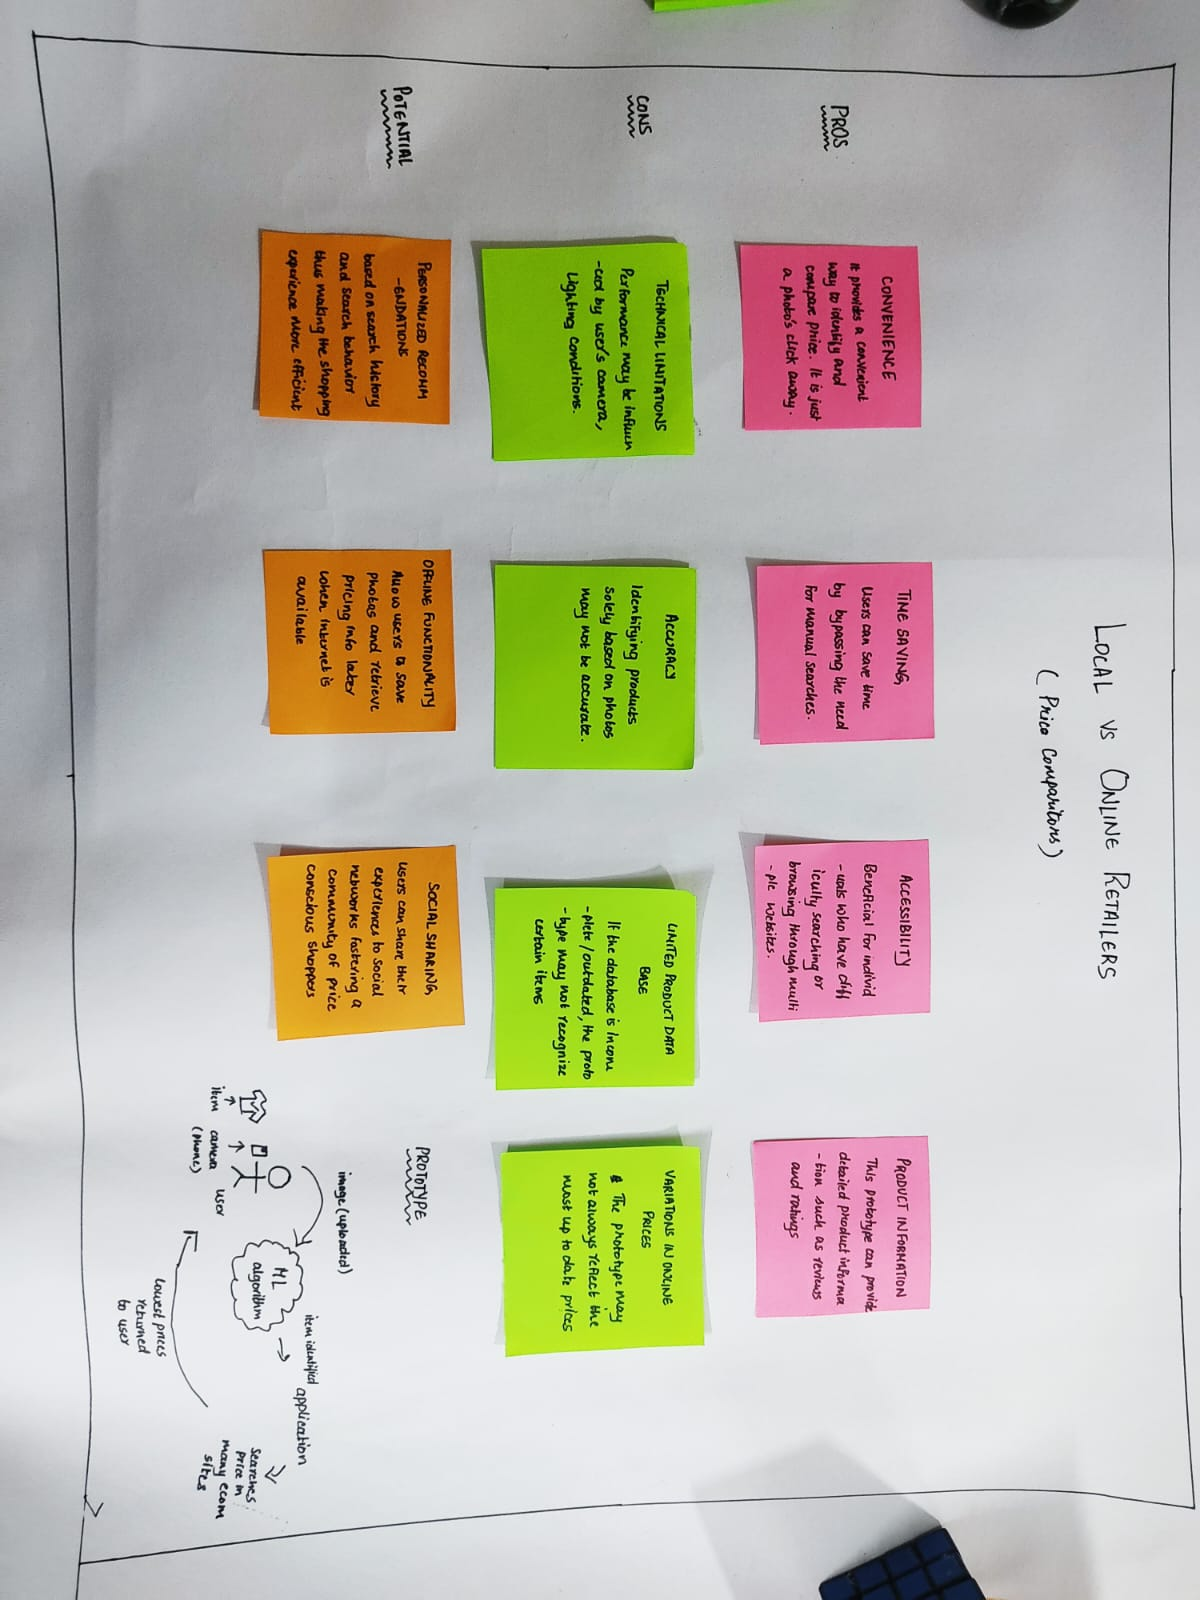 LOCAL VS ONLINE RETAILERS
(Price Comparitors)
PROS
CONVENIENCE
It provides a convenient
way to identify and
compare price. It is just
a photo's click away.
TIME SAVING
Users can save time
by bypassing the need
for manual searches.
ACCESSIBILITY
Beneficial for individ
-uals who have diff
iculty searching or
browsing through multi
-ple websites.
PRODUCT INFORMATION
This prototype can provide
detailed product informa
-tion such as reviews
and ratings
CONS
TECHNICAL LIMITATIONS
Performance may be influen
-ced by user's camera,
Lighting conditions.
ACCURACY
Identifying products
solely based on photos
may not be accurate.
LIMITED PRODUCT DATA
BASE
If the database is incom
-plete/outdated, the proto
-type may not recognize
certain items
VARIATIONS IN ONLINE
PRICES
The phototype may
not always reflect the
most up to date prices
POTENTIAL
PERSONALIZED RECOMM
-ENDATIONS
based on search history
and search behavior
thus making the shopping
experience more efficient
OFFLINE FUNCTIONALITY
Allow users to save
photos and retrieve
pricing info later
when internet is
available
SOCIAL SHARING
users can share their
experiences to social
networks fostering a
community of price
conscious shoppers
PROTOTYPE
image (uploaded)
item
camera
(phone)
user
ML
algorithm
item identified
application
searches
price in
many ecom
sites
lowest prices
returned
to user